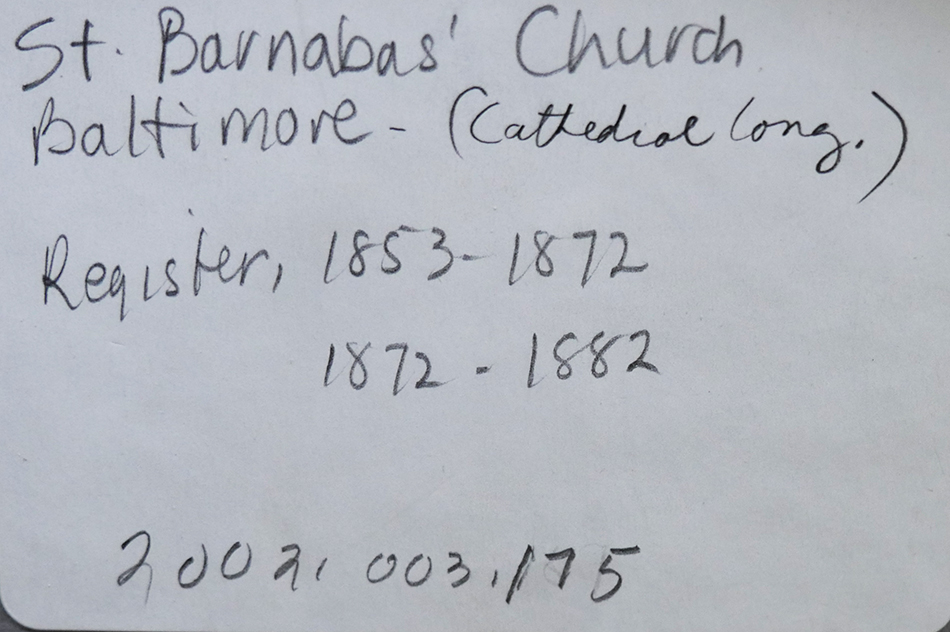 St. Barnabas' Church
Baltimore - (Cathedral Cong.)
Register, 1853-1872
1872 - 1882
2002.003.175